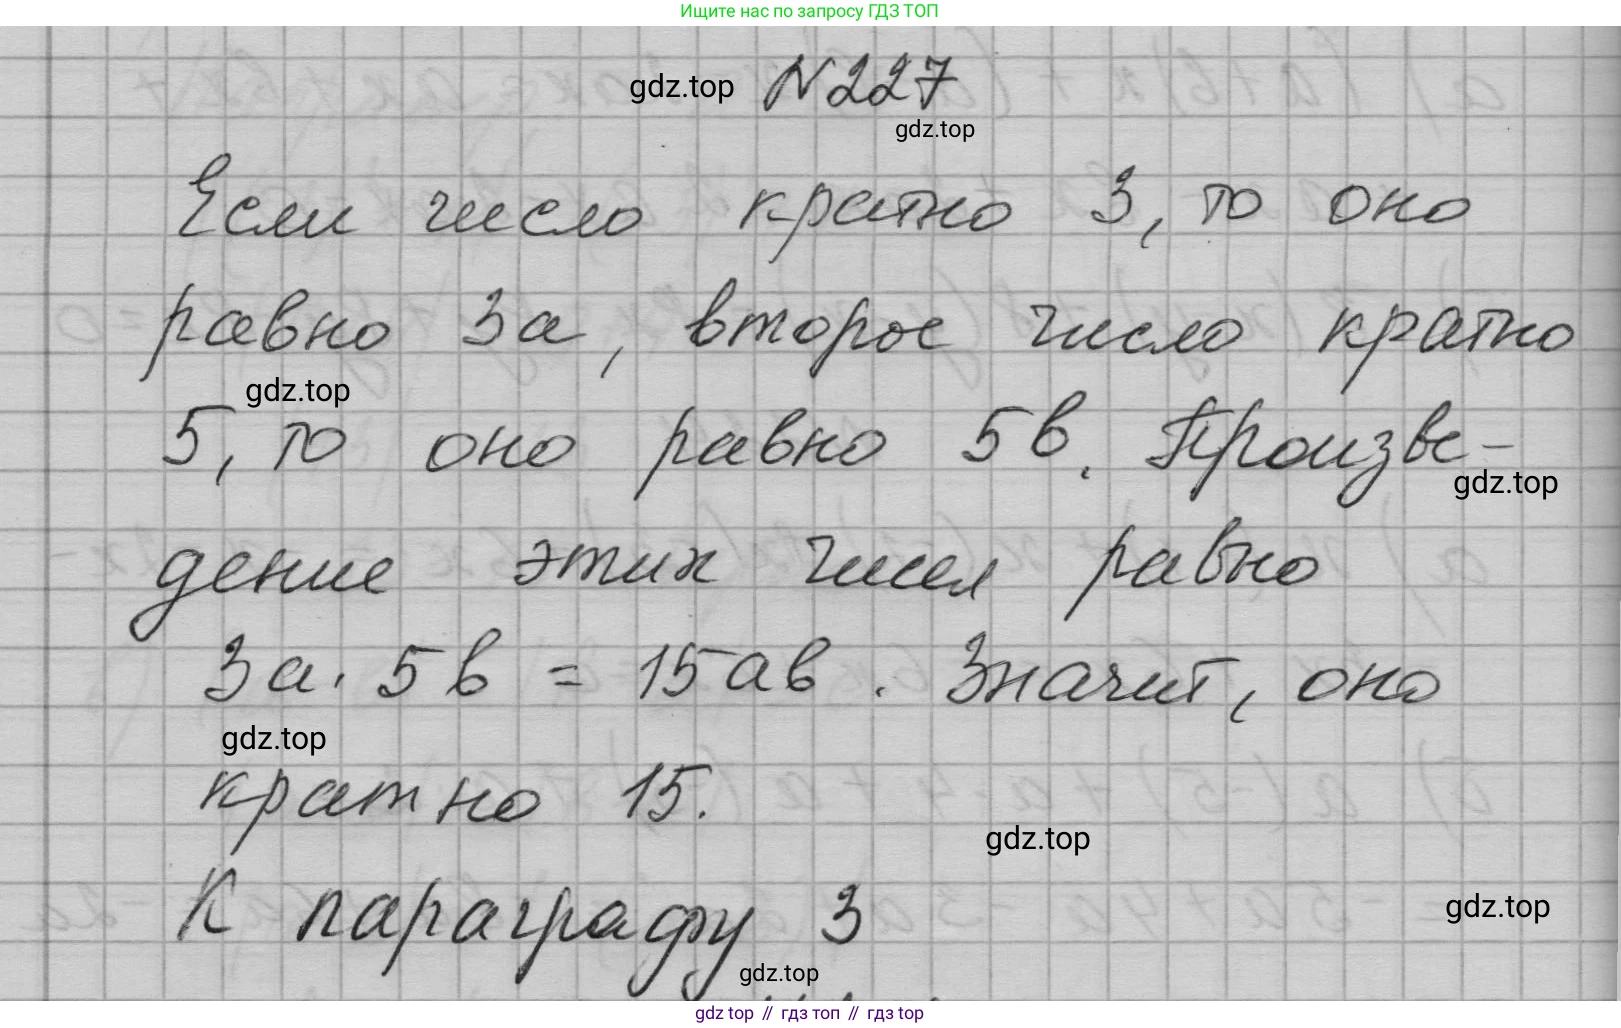 Ищите нас по запросу ГДЗ ТОП
gdz.top N 227
gdz.top
Если число кратно 3, то оно
равно 3а, второе число кратно
gdz.top
5, то оно равно 5в. Произве-
gdz.top
дение этих чисел равно
3а · 5в = 15ав. Значит, оно
gdz.top
кратно 15.
gdz.top
К параграфу 3
gdz.top
gdz.top
gdz top // гдз топ // гдз top